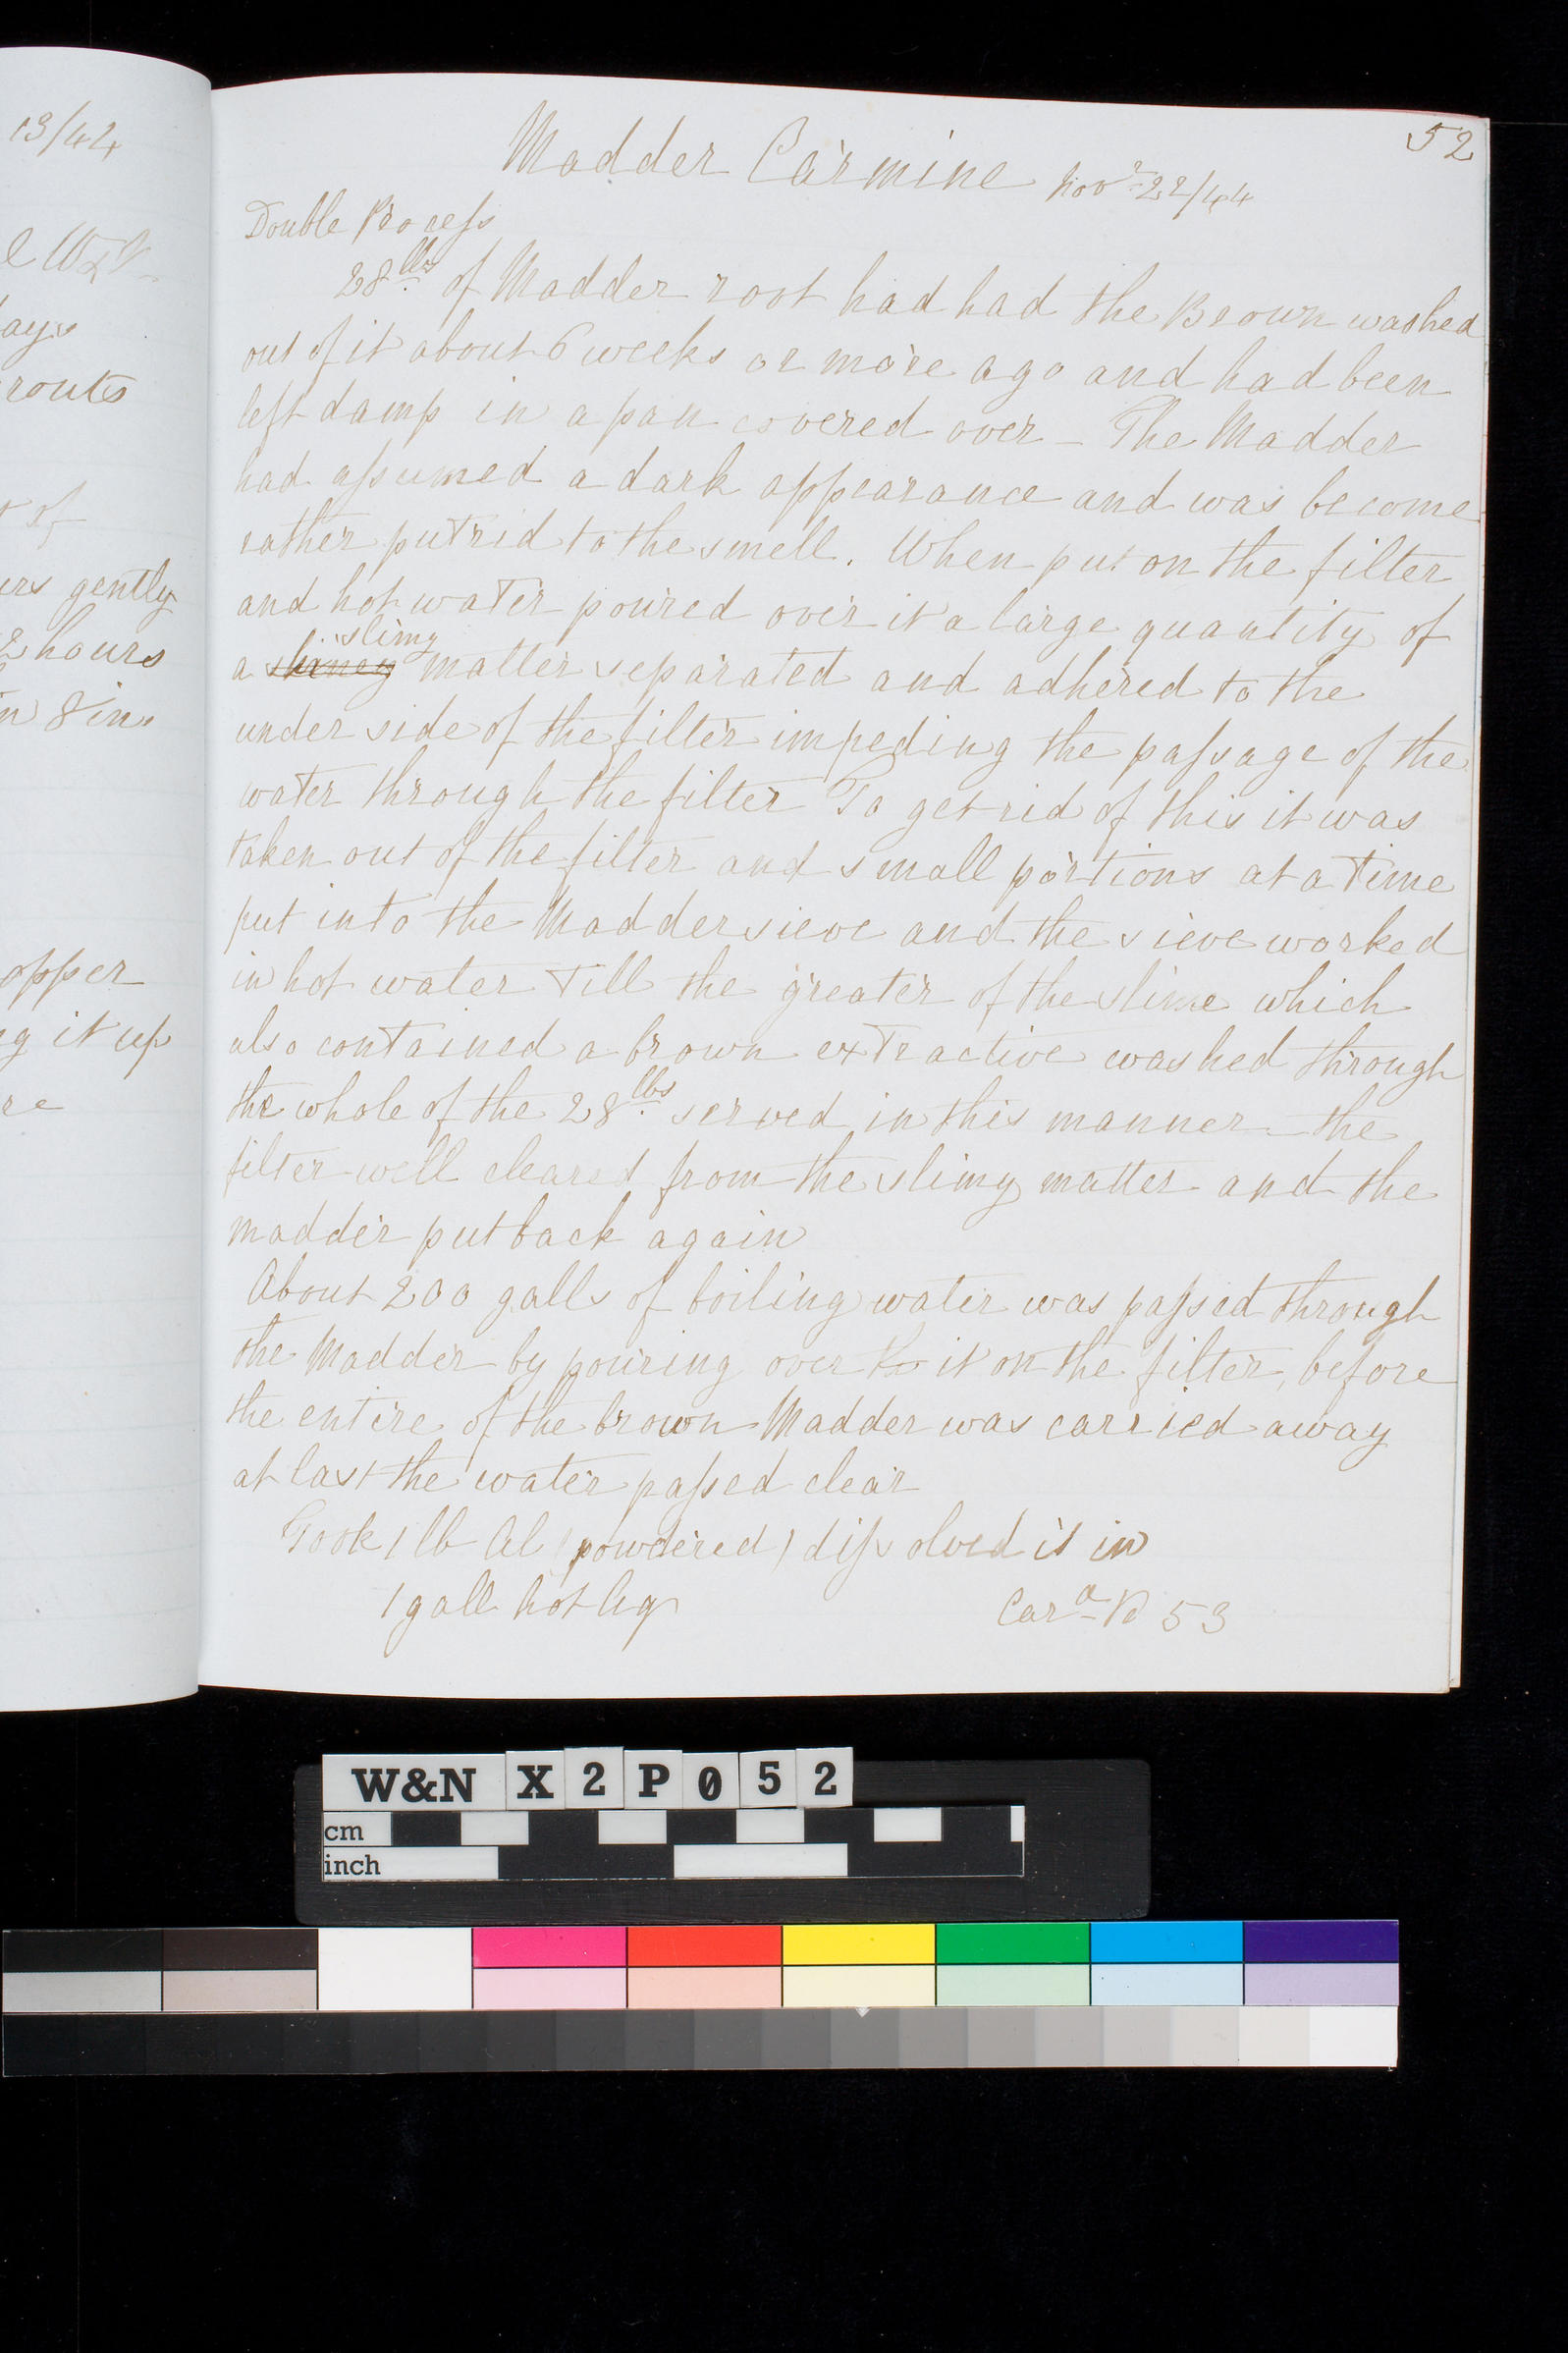 13/42
e W&N
ays
routs
t of
urs gently
2 hours
in 8 in.
opper
ng it up
re
52
Madder Carmine Novr 22/44
Double Process
28 lbs of Madder root had had the Brown washed
out of it about 6 weeks or more ago and had been
left damp in a pan covered over – The Madder
had assumed a dark appearance and was become
rather putrid to the smell. When put on the filter
and hot water poured over it a large quantity of
slimy
a matter separated and adhered to the
under side of the filter impeding the passage of the
water through the filter To get rid of this it was
taken out of the filter and small portions at a time
put into the Madder sieve and the sieve worked
in hot water till the greater of the slime which
also contained a brown extractive washed through
the whole of the 28 lbs served in this manner – the
filter well cleared from the slimy matter and the
madder put back again
About 200 galls of boiling water was passed through
the Madder by pouring over it on the filter, before
the entire of the brown Madder was carried away
at last the water passed clear
Took 1 lb Al (powdered) dissolved it in
1 gall hot Aq
Card Po 53
W&N X2P052
cm
inch